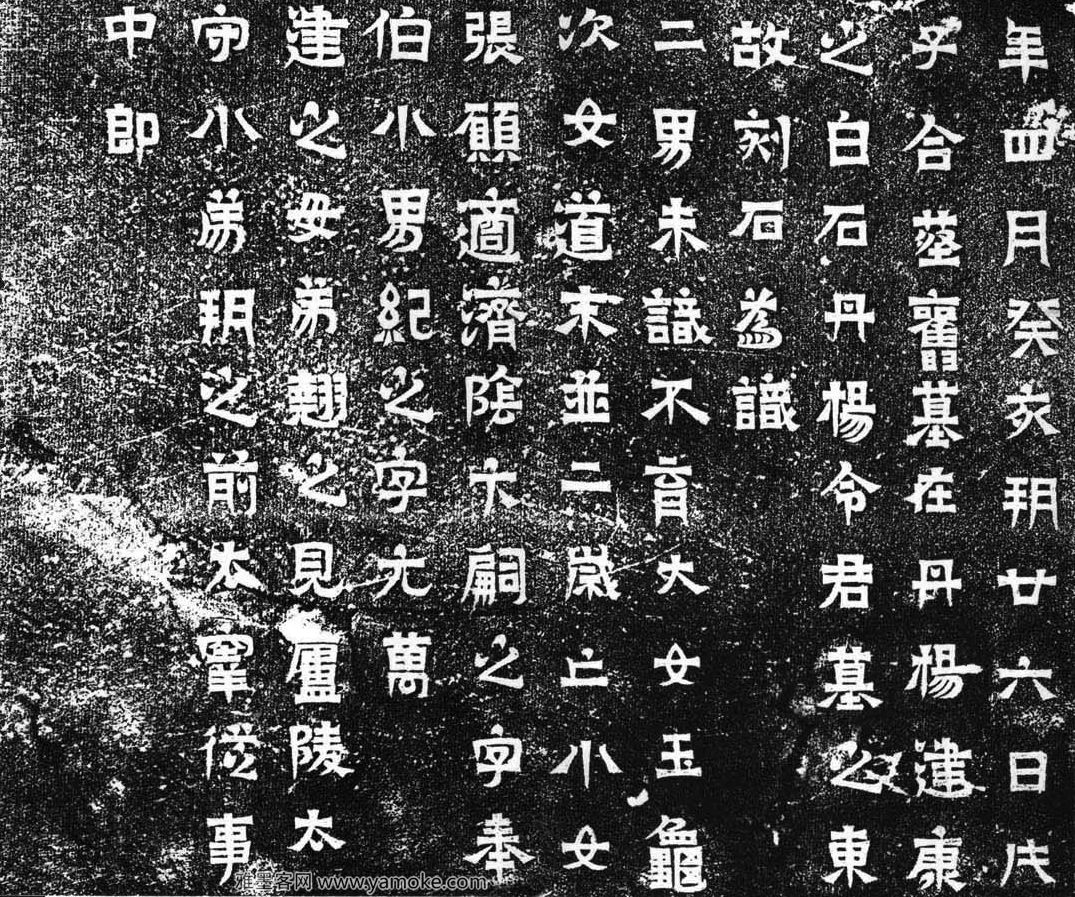 年四月癸亥朔廿六日戊
子合塟舊墓在丹楊建康
之白石丹楊令君墓之東
故刻石為識
二男未識不育大女玉龜
次女道末並二歲亡小女
張願適濟陰卞嗣之字奉
伯小男紀之字元萬
建之母弟翹之見廬陵太
守小弟朔之前太宰從事
中郎
雅墨客网 www.yamoke.com